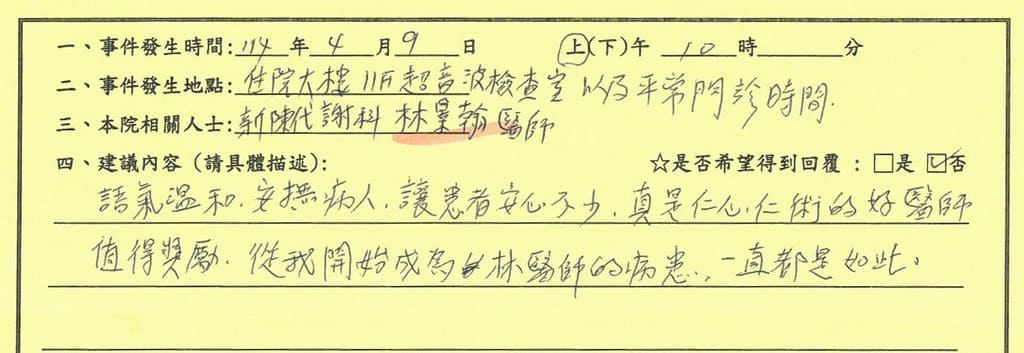 一、事件發生時間: 114 年 4 月 9 日 上(下)午 10 時 分
二、事件發生地點: 住院大樓 11F 超音波檢查室 以及平常門診時間.
三、本院相關人士: 新陳代謝科 林景翰醫師
四、建議內容 (請具體描述): ☆是否希望得到回覆 : □是 ☑否
語氣溫和、安撫病人、讓患者安心不少、真是仁心仁術的好醫師
值得獎勵. 從我開始成為林醫師的病患,, 一直都是如此。